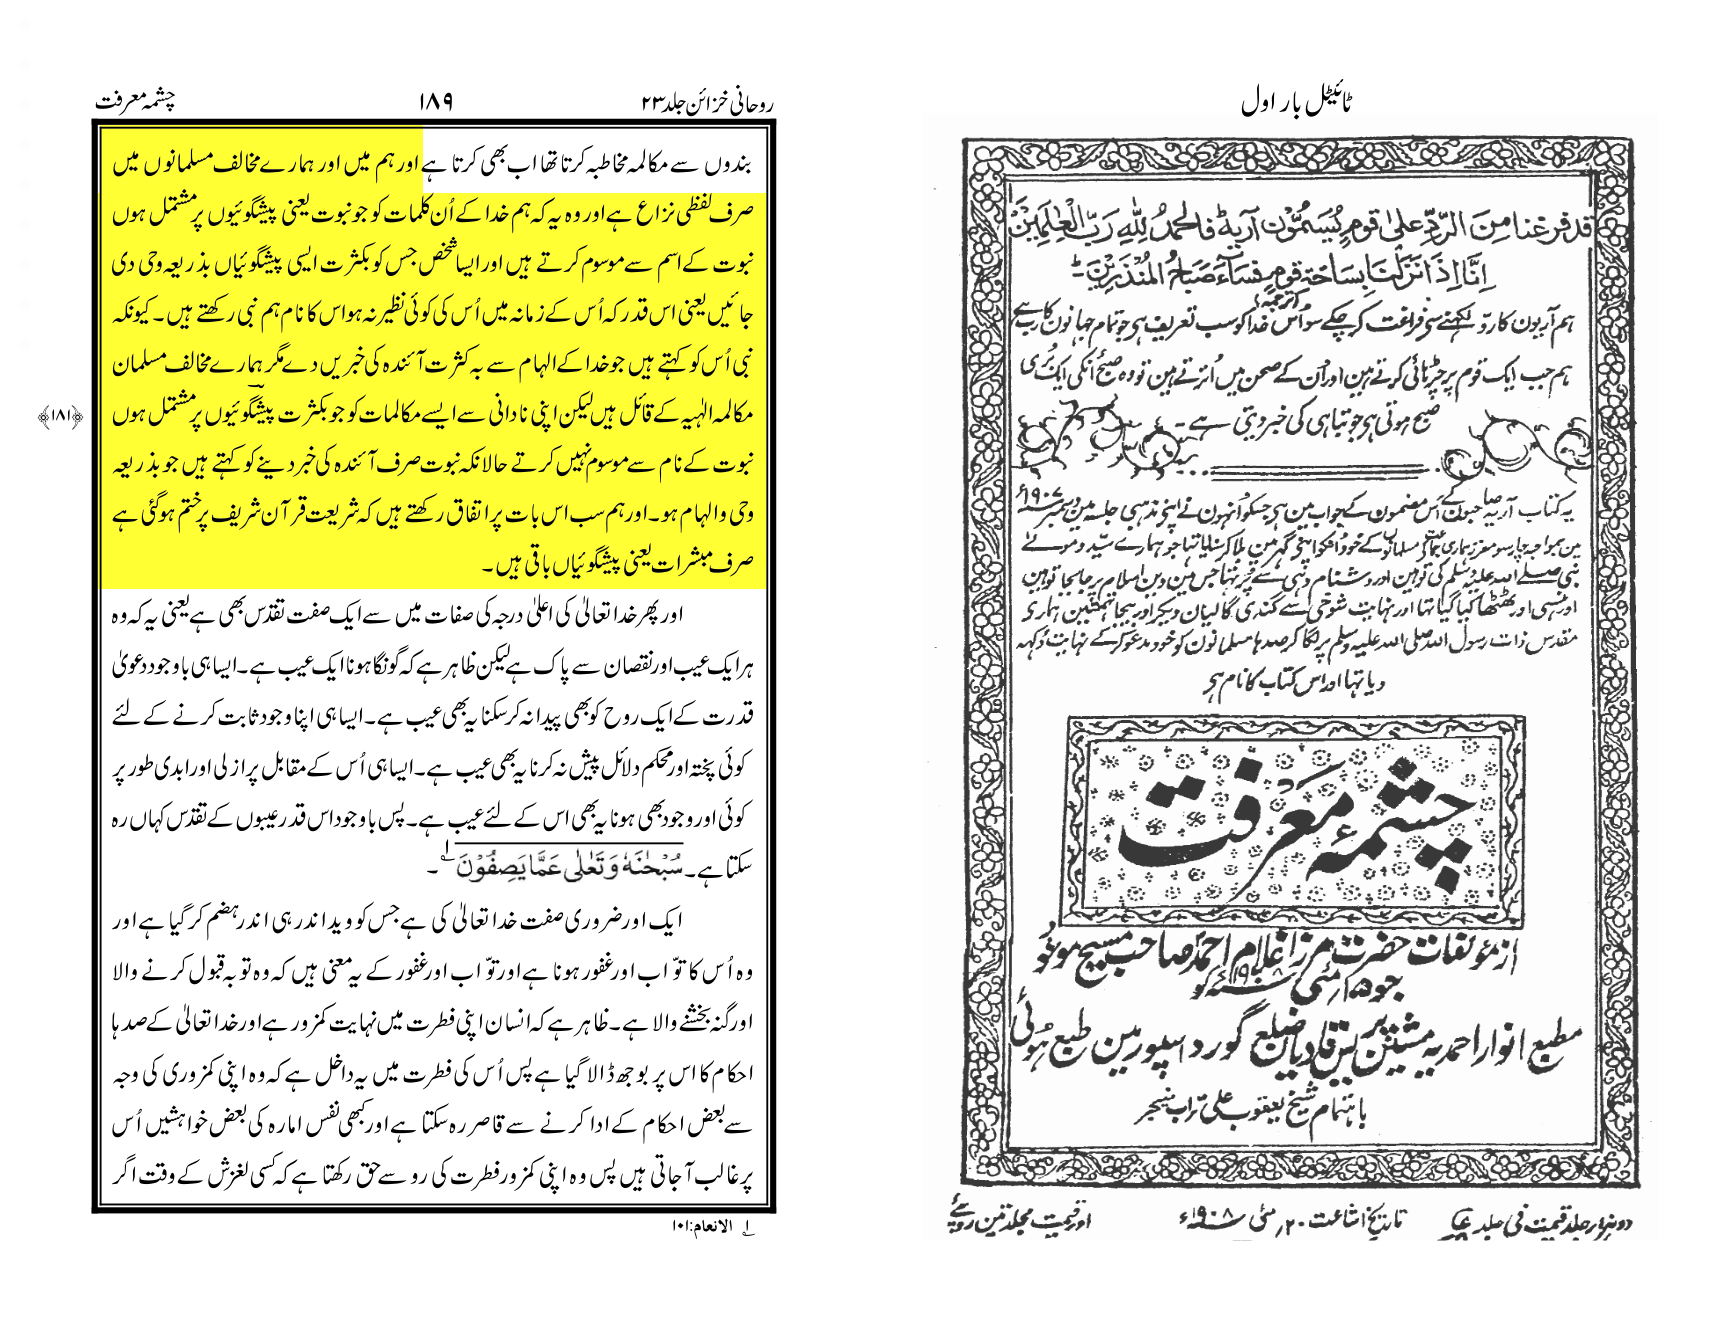 ٹائیٹل بار اول
قد فرغنا من الردّ علیٰ قوم یُسَمُّون آریة فالحمدُ لِلّٰہِ رَبِّ الْعٰلَمِیْنَ
اِنَّا اِذَا نَزَلْنَا بِسَاحَةِ قَومٍ فَسَآءَ صَبَاحُ المُنْذَرِیْنَ۔
ترجمہ
ہم آریون کا ردّ لکھنے سے فراغت کر چکے سو اُس خدا کو سب تعریف ہے جو تمام جہانون کا رب ہے
ہم جب ایک قوم پر چڑہائی کرتے ہین اور اُن کے صحن مین اُترتے ہین تو وہ صبح اُنکی ایک بُری
صبح ہوتی ہے جو تباہی کی خبر دیتی ہے۔
یہ کتاب آریہ صاحبون کے اُس مضمون کے جواب مین ہے جسکو اُنہون نے اپنے مذہبی جلسہ مین دسمبر ۱۹۰۷ء
مین بمواجہ چار سو معزز ہماری جماعت کے مسلمانوں کے خود اُنکو اپنے گھر مین بلا کر سنایا تہا جو ہمارے سیّد و مولےٰ
نبی صلے اللہ علیہ وسلم کی توہین اور دشنام دہی سے پُر تہا جس مین دین اسلام پر جابجا توہین
اور ہنسی اور ٹھٹھا کیا گیا تہا اور نہایت شوخی سے گندی گالیان دیکر اور بیجا تہمتین ہماری
مقدس ذات رسول اللہ صلی اللہ علیہ وسلم پر لگا کر صدہا مسلمانون کو خود مدعو کر کے نہایت دُکہہ
دیا تہا اور اس کتاب کا نام ہے
چشمۂ معرفت
از مؤلفات حضرت مرزا غلام احمدؐ صاحب مسیح موعود
جو ۱۵؍ مئی ۱۹۰۸ء کو
مطبع انوار احمدیہ مشین پریس قادیان ضلع گورداسپور مین طبع ہوئی
باہتمام شیخ یعقوب علی تراب منیجر
تاریخ اشاعت ۲۰؍ مئی ۱۹۰۸ء
روحانی خزائن جلد ۲۳
۱۸۹
چشمہ معرفت
بندوں سے مکالمہ مخاطبہ کرتا تھا اب بھی کرتا ہے اور ہم میں اور ہمارے مخالف مسلمانوں میں
صرف لفظی نزاع ہے اور وہ یہ کہ ہم خدا کے اُن کلمات کو جو نبوت یعنی پیشگوئیوں پر مشتمل ہوں
نبوت کے اسم سے موسوم کرتے ہیں اور ایسا شخص جس کو بکثرت ایسی پیشگوئیاں بذریعہ وحی دی
جائیں یعنی اس قدر کہ اُس کے زمانہ میں اُس کی کوئی نظیر نہ ہو اس کا نام ہم نبی رکھتے ہیں۔ کیونکہ
نبی اُس کو کہتے ہیں جو خدا کے الہام سے بہ کثرت آئندہ کی خبریں دے مگر ہمارے مخالف مسلمان
مکالمہ الٰہیہ کے قائل ہیں لیکن اپنی نادانی سے ایسے مکالمات کو جو بکثرت پیشگوئیوں پر مشتمل ہوں
﴿۱۸۱﴾
نبوت کے نام سے موسوم نہیں کرتے حالانکہ نبوت صرف آئندہ کی خبر دینے کو کہتے ہیں جو بذریعہ
وحی والہام ہو۔ اور ہم سب اس بات پر اتفاق رکھتے ہیں کہ شریعت قرآن شریف پر ختم ہو گئی ہے
صرف مبشرات یعنی پیشگوئیاں باقی ہیں۔
اور پھر خدا تعالیٰ کی اعلیٰ درجہ کی صفات میں سے ایک صفت تقدّس بھی ہے یعنی یہ کہ وہ
ہر ایک عیب اور نقصان سے پاک ہے لیکن ظاہر ہے کہ گونگا ہونا ایک عیب ہے۔ ایسا ہی باوجود دعویٰ
قدرت کے ایک روح کو بھی پیدا نہ کر سکنا یہ بھی عیب ہے۔ ایسا ہی اپنا وجود ثابت کرنے کے لئے
کوئی پختہ اور محکم دلائل پیش نہ کرنا یہ بھی عیب ہے۔ ایسا ہی اُس کے مقابل پر ازلی اور ابدی طور پر
کوئی اور وجود بھی ہونا یہ بھی اس کے لئے عیب ہے۔ پس باوجود اس قدر عیبوں کے تقدّس کہاں رہ
سکتا ہے۔ سُبْحٰنَهٗ وَتَعٰلٰى عَمَّا يَصِفُوْنَ ۱؎۔
ایک اور ضروری صفت خدا تعالیٰ کی ہے جس کو وید اندر ہی اندر ہضم کر گیا ہے اور
وہ اُس کا توّاب اور غفور ہونا ہے اور توّاب اور غفور کے یہ معنی ہیں کہ وہ توبہ قبول کرنے والا
اور گنہ بخشنے والا ہے۔ ظاہر ہے کہ انسان اپنی فطرت میں نہایت کمزور ہے اور خدا تعالیٰ کے صدہا
احکام کا اس پر بوجھ ڈالا گیا ہے پس اُس کی فطرت میں یہ داخل ہے کہ وہ اپنی کمزوری کی وجہ
سے بعض احکام کے ادا کرنے سے قاصر رہ سکتا ہے اور کبھی نفس امارہ کی بعض خواہشیں اُس
پر غالب آجاتی ہیں پس وہ اپنی کمزور فطرت کی رو سے حق رکھتا ہے کہ کسی لغزش کے وقت اگر
۱؎ الانعام:۱۰۱